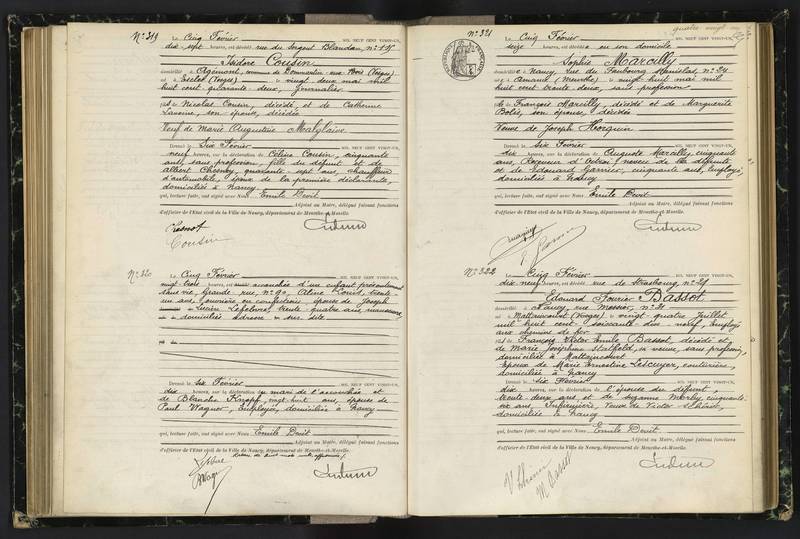 N° 319
Le Cinq Février MIL NEUF CENT VINGT-UN,
dix-sept heures, est décédé rue du Sergent Blandan, n°
Isidore Cousin
domicilié à commune de (Vosges)
né à (Vosges) le vingt deux mai mil
huit cent quarante deux, journalier
fils de Nicolas Cousin, décédé, et de Catherine
son épouse, décédée
Veuf de Marie Augustine Malglaive
Dressé le Six Février MIL NEUF CENT VINGT-UN,
neuf heures, sur la déclaration de Céline Cousin, cinquante
ans, sans profession, fille du défunt et de
Albert quarante-sept ans, chauffeur
d'automobile, époux de la première déclarante,
domiciliés à Nancy
qui, lecture faite, ont signé avec Nous Emile Devit
Adjoint au Maire, délégué faisant fonctions
d'officier de l'Etat civil de la Ville de Nancy, département de Meurthe-et-Moselle.
Cousin
N° 320
Le Cinq Février MIL NEUF CENT VINGT-UN,
vingt trois heures, est accouchée d'un enfant présentement
sans vie, Grande rue, n° 90, Aline Louis, trente
un ans, ouvrière en confections, épouse de Joseph
Lucien Lefebvre, trente quatre ans, manœuvre
domiciliés adresse sus dite
Dressé le Six Février MIL NEUF CENT VINGT-UN,
dix heures, sur la déclaration du mari de l'accouchée et
de Blanche vingt huit ans, épouse de
Paul Wagner, employée, domiciliée à Nancy
qui, lecture faite, ont signé avec Nous Emile Devit
Adjoint au Maire, délégué faisant fonctions
d'officier de l'Etat civil de la Ville de Nancy, département de Meurthe-et-Moselle.
quatre vingt
N° 321
Le Cinq Février MIL NEUF CENT VINGT-UN,
seize heures, est décédée en son domicile
Sophie Marcilly
domiciliée à Nancy, rue du Faubourg Stanislas, n° 24
née à (Meurthe) le vingt huit mai mil
huit cent trente deux, sans profession
fille de François Marcilly, décédé et de Marguerite
Bolis, son épouse, décédée
Veuve de Joseph Horquin
Dressé le Six Février MIL NEUF CENT VINGT-UN,
dix heures, sur la déclaration de Auguste Marcilly, cinquante
ans, d'Octroi, neveu de la défunte
et de Edouard Garnier, cinquante ans, employé,
domiciliés à Nancy
qui, lecture faite, ont signé avec Nous Emile Devit
Adjoint au Maire, délégué faisant fonctions
d'officier de l'Etat civil de la Ville de Nancy, département de Meurthe-et-Moselle.
N° 322
Le Cinq Février MIL NEUF CENT VINGT-UN,
dix neuf heures, est décédé rue de Strasbourg, n°
Edouard Fourier Bassot
domicilié à Nancy, rue Messier, n° 21
né à Mattaincourt (Vosges) le vingt-quatre Juillet
mil huit cent soixante-dix-neuf, employé
aux chemins de fer
fils de François Victor Emile Bassot, décédé et
de Marie Joséphine sa veuve, sans profession,
domiciliée à Mattaincourt
époux de Marie Ernestine Lescuyer, couturière,
domiciliée à Nancy
Dressé le Six Février MIL NEUF CENT VINGT-UN,
dix heures, sur la déclaration de l'épouse du défunt,
trente-deux ans, et de Suzanne cinquante
six ans, Infirmière, Veuve de Victor
domiciliées à Nancy
qui, lecture faite, ont signé avec Nous Emile Devit
Adjoint au Maire, délégué faisant fonctions
d'officier de l'Etat civil de la Ville de Nancy, département de Meurthe-et-Moselle.
M. Bassot